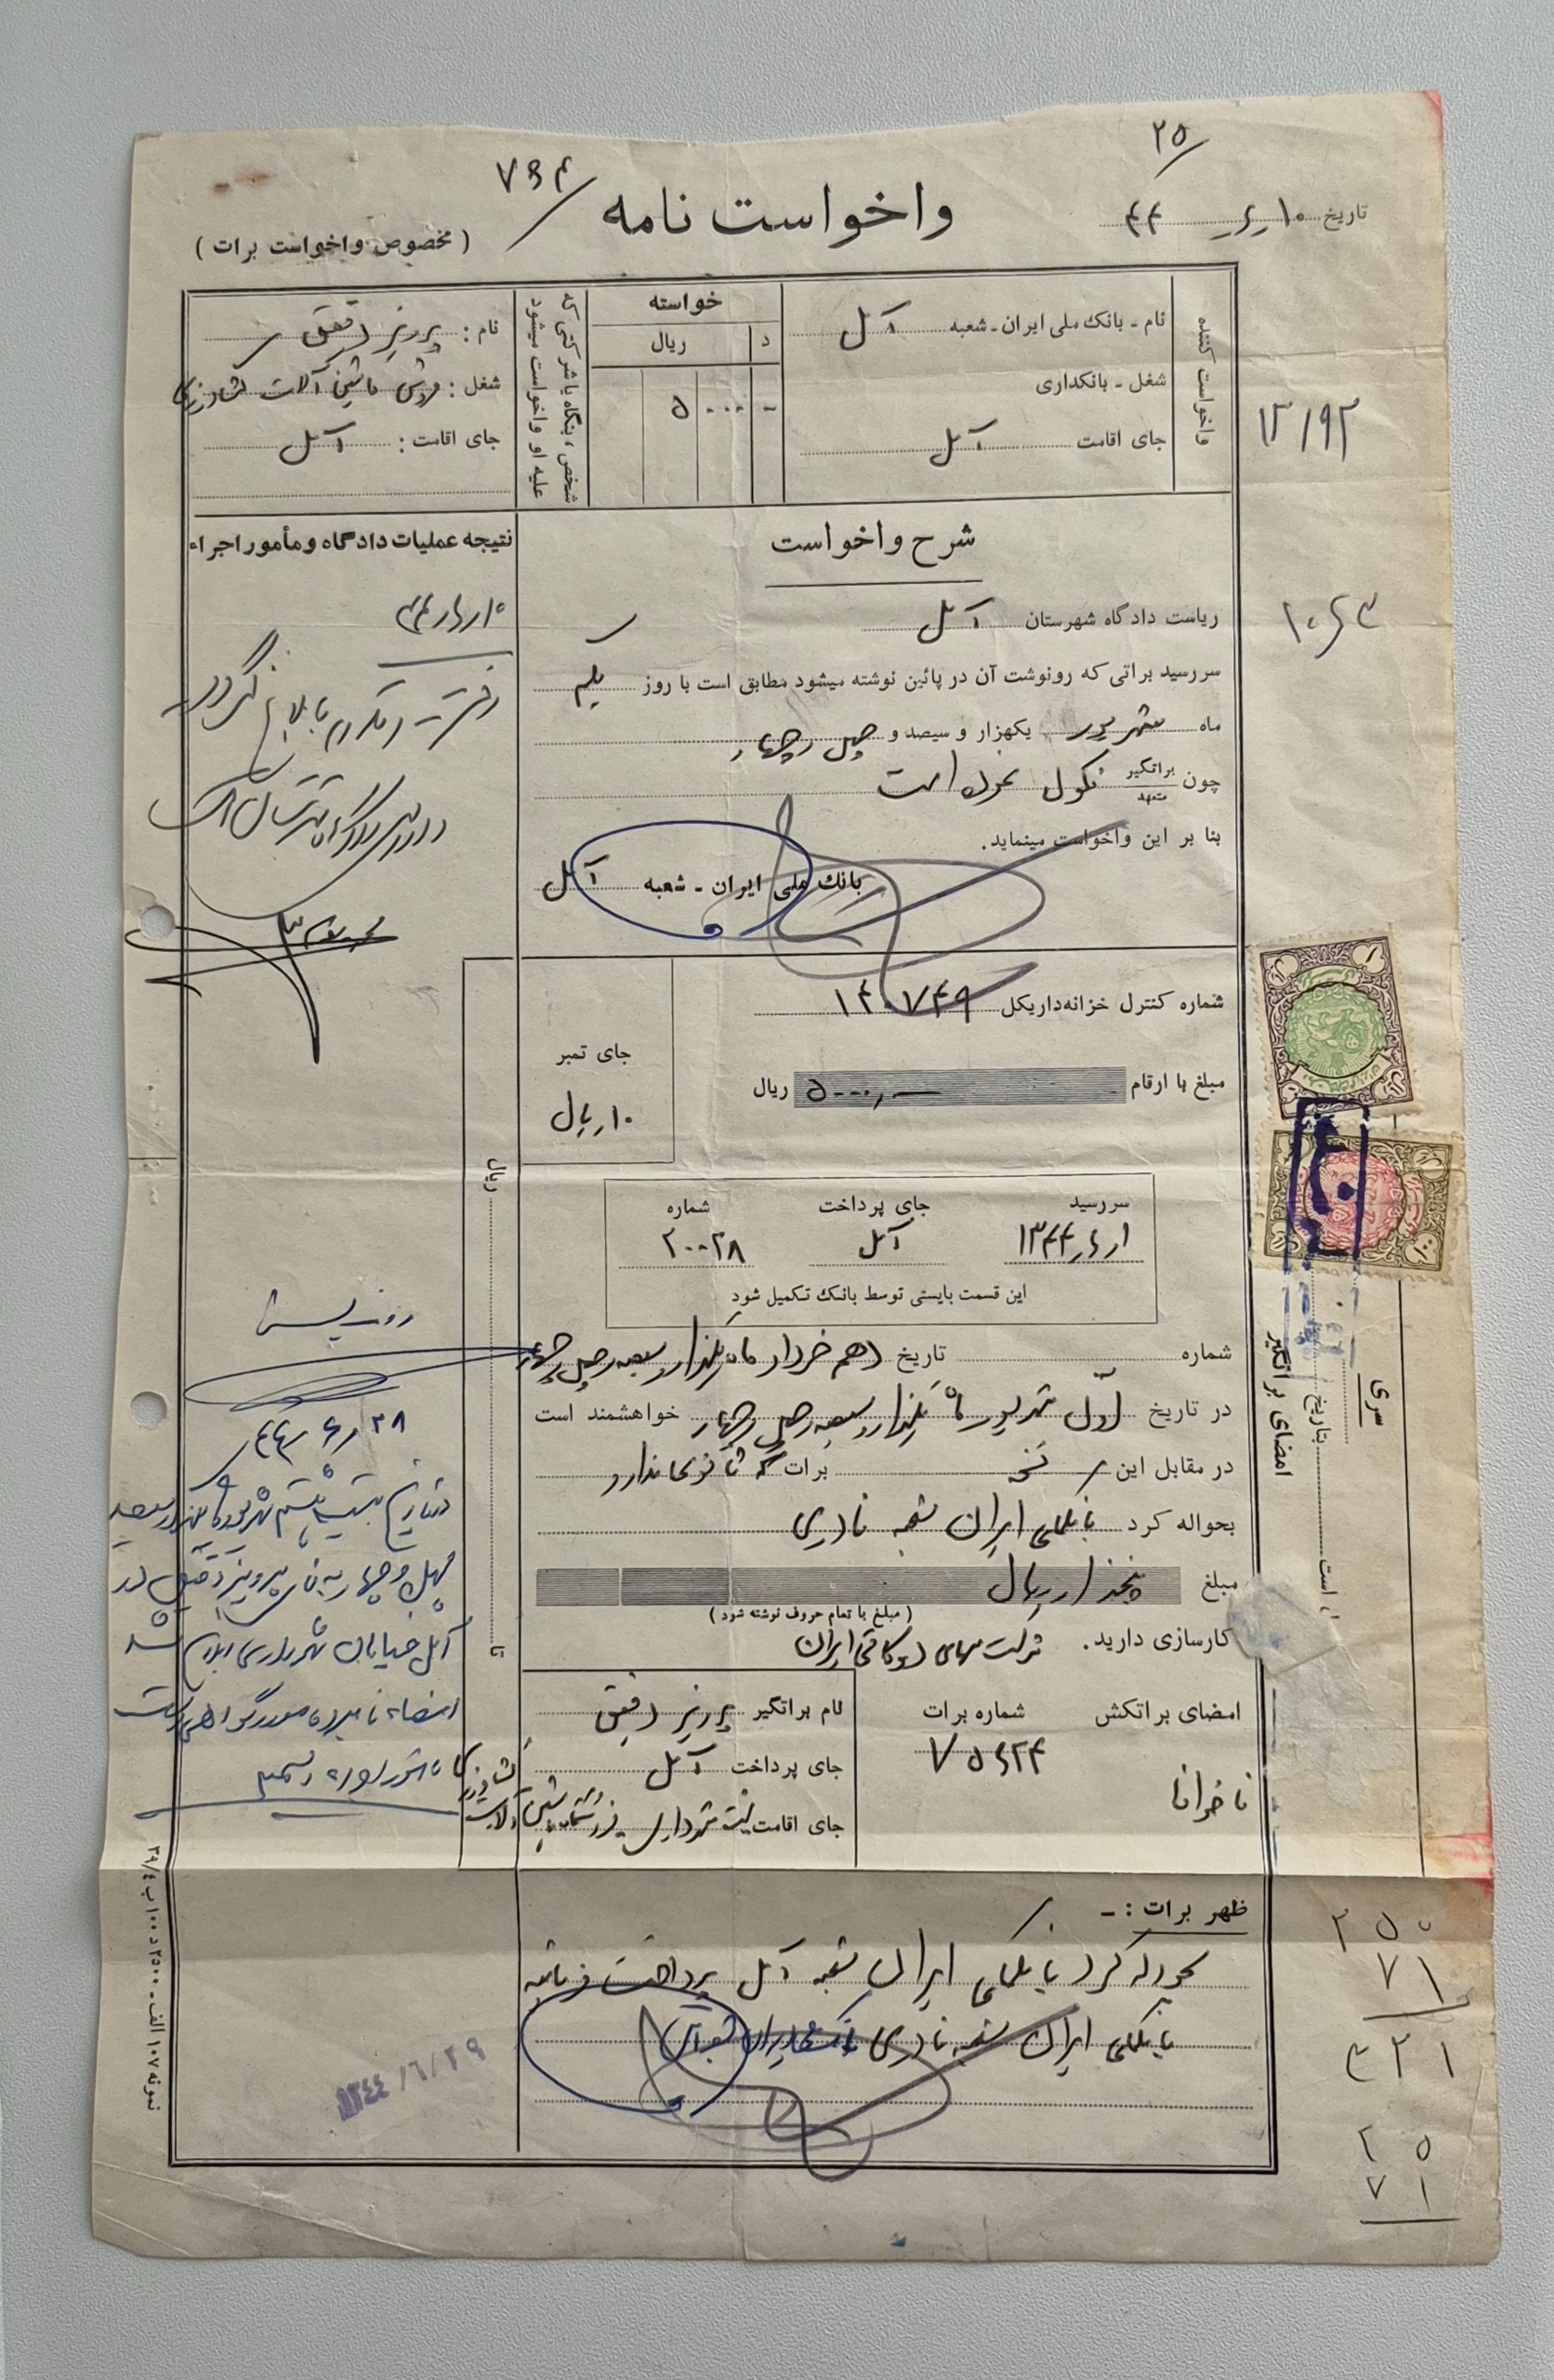 ۲۵/
تاریخ ۱۰ر۶ر۴۴
۷۹۴/
واخواست نامه
( مخصوص واخواست برات )
واخواست کننده
نام - بانک ملی ایران - شعبه آمل
شغل - بانکداری
جای اقامت آمل
خواسته
د
ریال
- ۵۰۰۰
شخص ، بنگاه یا شرکتی که
علیه او واخواست میشود
نام : پرویز دقیق
شغل : فروش ماشین آلات کشاورزی
جای اقامت : آمل
۱۲/۹۲
۱۰۶۳
شرح واخواست
ریاست دادگاه شهرستان آمل
سررسید براتی که رونوشت آن در پائین نوشته میشود مطابق است با روز یکم
ماه شهریور یکهزار و سیصد و چهل و چهار
چون براتگیر متعهد نکول نموده است
بنا بر این واخواست مینماید.
بانک ملی ایران - شعبه آمل
نتیجه عملیات دادگاه و مأمور اجراء
۱۰ر۶ر۴۴
شماره کنترل خزانه‌داریکل ۱۴۰۷۴۹
مبلغ با ارقام ۵۰۰۰ر- ریال
جای تمبر
۱۰ ریال
ریال
تا
سررسید جای پرداخت شماره
۱ر۶ر۱۳۴۴ آمل ۲۰۰۲۸
این قسمت بایستی توسط بانک تکمیل شود
شماره تاریخ دهم خرداد ماه یکهزار و سیصد و چهل و چهار
در تاریخ اول شهریور ماه یکهزار و سیصد و چهل و چهار خواهشمند است
در مقابل این نسخه برات که ثانوی ندارد
بحواله کرد بانکملی ایران شعبه نادری
مبلغ پنجهزار ریال
( مبلغ با تمام حروف نوشته شود )
کارسازی دارید. شرکت سهامی ایران
امضای براتکش
ناخوانا
شماره برات
۷۵۶۲۴
نام براتگیر پرویز دقیق
جای پرداخت آمل
جای اقامت پشت شهرداری فروش ماشین آلات کشاورزی
سری
بتاریخ است
امضای براتگیر
رونویس
۲۸ر۶ر۴۴
در تاریخ بیست و هشتم شهریور ماه یکهزار و سیصد
چهل و چهار به آقای پرویز دقیق در
آمل خیابان شهرداری ابلاغ شد
امضاء نامبرده مورد گواهی است
ظهر برات : -
بحواله کرد بانکملی ایران شعبه آمل پرداخت فرمائید
بانکملی ایران شعبه نادری بانک ملی ایران شعبه آمل
۱۳۴۴/۶/۲۹
۲۵۰
۷۱
۳۲۱
۲۵
۷۱
نمونه ۱۰۷ الف - ۲۵۰۰ د ۱۰۰ ب ۳۹/۴